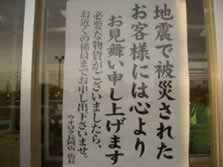 地震で被災された
お客様には心より
お見舞い申し上げます
必要な物資がございましたら、
お近くの係員までお申し出下さいませ